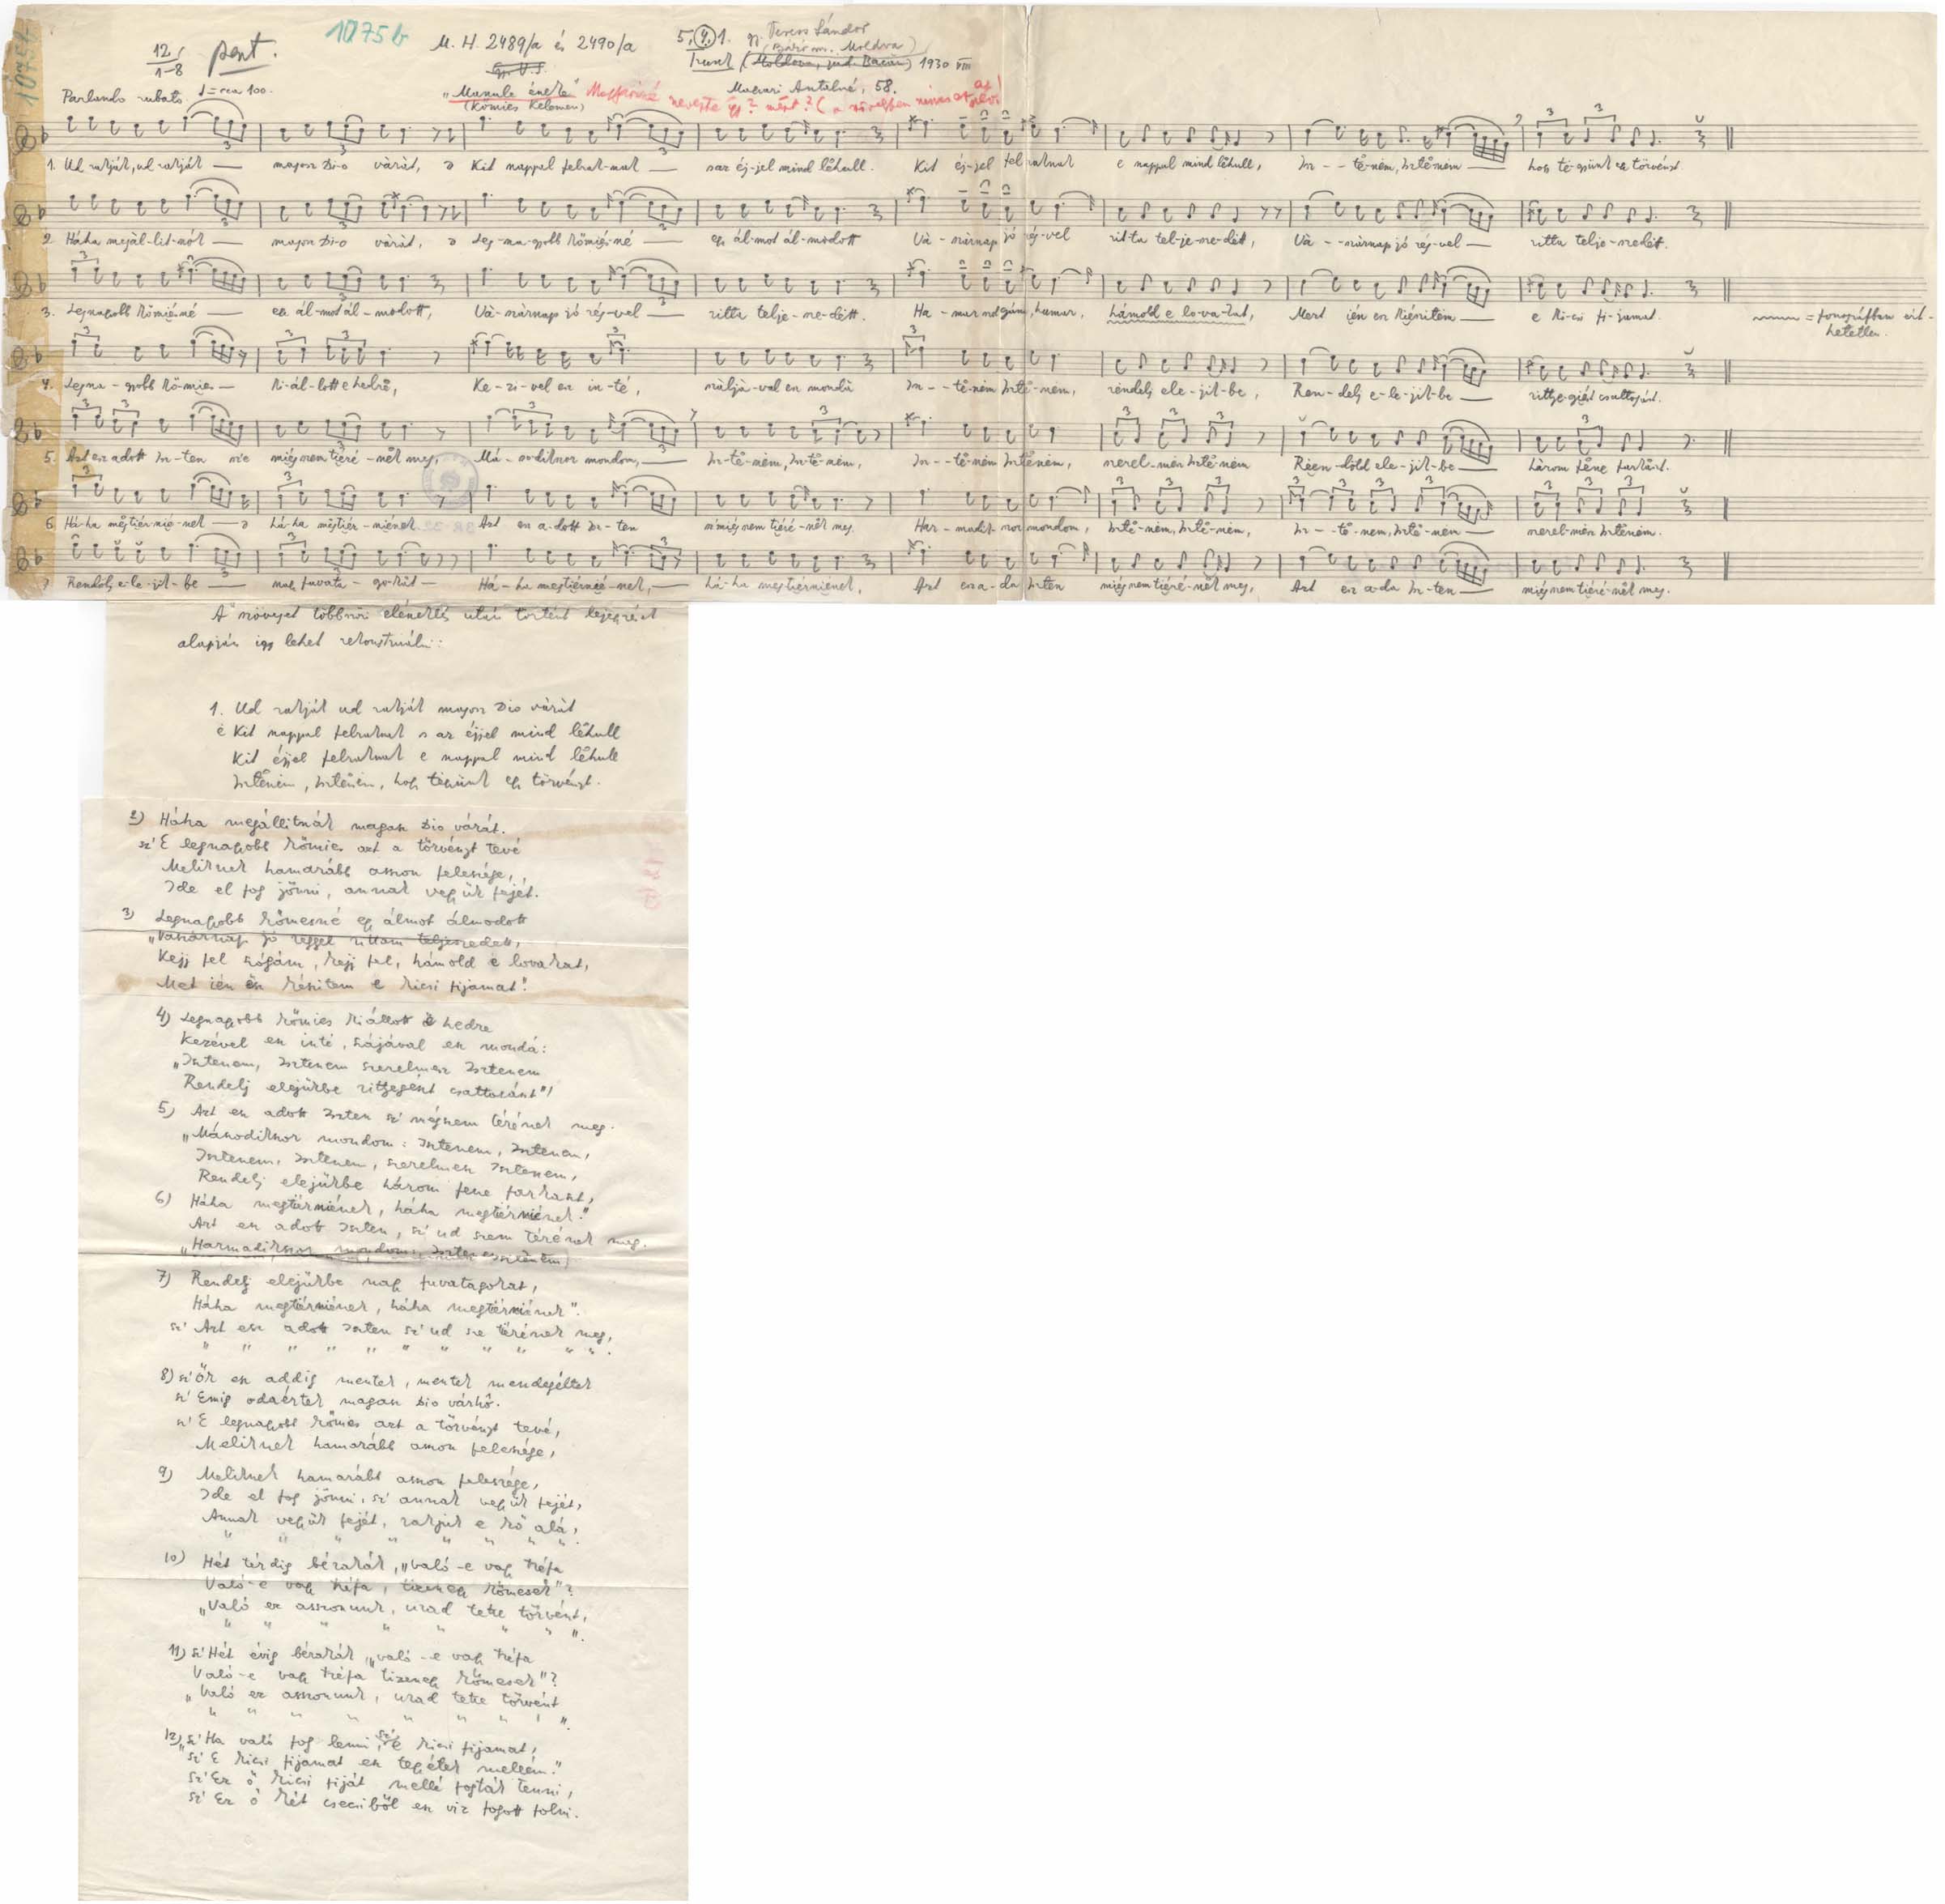 1075b
1075b
12/1-8 pent.
M. H. 2489/a és 2490/a
5,(4,)1. gy. Veress Sándor
(Bákó m. Moldva)
Gy. V. S.
Trunk (Moldova, jud. Bacău) 1930 VIII
Parlando rubato ♩= cca 100.
"Manule éneke"
Magyari Antalné, 58.
(Kőmies Kelemen)
1. Ud rakják, ud rakják — magos Di-o várát, Kit nappal felrak-nak — s az éj-jel mind lehull. Kit éj-jel felraknak e nappal mind lehull, Is-te-nem, Istenem — hogy te-gyünk törvényt.
2. Háha megál-lit-nók — magos Di-o várát, Leg-na-gyobb kőmiés-né — egy ál-mot ál-modott Vá-sárnap jó rég-vel ritta tel-je-se-dék, Vá-sárnap jó rég-vel — ritta telje-sedék.
3. Legnagyobb kőmiésné — egy ál-mot ál-modott, Vá-sárnap jó rég-vel — ritta telje-se-dék. Ha-mar szógám, hamar, hámold e lo-va-kat, Mert ién es kiészitem — e ki-csi fi-jamat.
= fonográfban ért-
hetetlen.
4. Legna-gyobb kő-mies — ki-ál-lott e hedre, Ke-zi-vel es in-té, szájá-val es mondá Is-te-nem Iste-nem, rendelj ele-jik-be, Ren-delj e-le-jik-be — csattogást.
5. Azt es adott Is-ten s'e miégnem tiéré-nek meg, Má-sodikszor mondom, — Is-te-nem, Is-te-nem, Is-te-nem Istenem, szerel-mes Istenem Réen-döld ele-jik-be — három fene farkast.
6. Há-ha megtiérnié-nek — há-ha megtiér-niének. Azt es a-dott Is-ten s'miégnem tiéré-nek meg. Har-madik-szor mondom, Iste-nem, Iste-nem, Is-te-nem, Iste-nem — szerel-mes Istenem.
7. Rendelj e-le-jik-be — nagy fuvata-gokat — Há-ha megtiérnié-nek, — há-ha megtiérniének, Azt es a-da Isten miégnem tiéré-nek meg, Azt es a-da Is-ten — miégnem tiéré-nek meg.
A szöveget többszöri éneklés után történt lejegyzést
alapján igy lehet rekonstruálni:
1. Ud rakják ud rakják magos Dio várát
é Kit nappal felraknak s az éjjel mind lehull
Kit éjjel felraknak e nappal mind lehull
Istenem, Istenem, hogy tegyünk egy törvényt.
2) Háha megállitnák magas Dio várát.
sz' E legnagyobb kőmies azt a törvényt tevé
Meliknek hamarább asszon felesége,
Ide el fog jönni, annak vegyük fejét.
3) Legnagyobb kőmesné egy álmot álmodott
"Vasárnap jó reggel rittam teljesedett,
Kejj fel szógám, kejj fel, hámold e lovakat,
Met ién es készitem e kicsi fijamat."
4) Legnagyobb kőmies kiállott e hedre
Kezével es inté, szájával es mondá:
"Istenem, Istenem szerelmesz Istenem
Rendelj elejükbe csattosást"!
5) Azt es adott Isten sz' mégnem térének meg.
"Második­szor mondom: Istenem, Istenem,
Istenem, Istenem, szerelmesz Istenem,
Rendelj elejükbe három fene farkast,
6) Háha megtérniének, háha megtérniének."
Azt es adott Isten, sz' ud szem térének meg.
"Harmadikszor mondom, Istenem Istenem,
7) Rendelj elejükbe nagy fuvatagokat,
Háha megtérniének, háha megtérniének".
sz' Azt esz adott Isten sz' ud sze térének meg,
" " " " " " " " " ".
8) sz' Ők es addig mentek, mentek mendegéltek
sz' Emig odaértek magas Dio várhó.
sz' E legnagyobb kőmies azt a törvényt tevé,
Meliknek hamarább asszon felesége,
9) Meliknek hamarább asszon felesége,
Ide el fog jönni, sz' annak vegyük fejét,
Annak vegyük fejét, rakjuk e kő alá,
" " " " " " " ".
10) Hét térdig bérakák, "való-e vagy tréfa
Való-e vagy tréfa, tizenegy kőmesek"?
"Való ez asszonunk, urad tette törvént,
" " " " " " " ".
11) sz' Hét évig bérakák "való-e vagy tréfa
Való-e vagy tréfa tizenegy kőmesek"?
"Való ez asszonunk, urad tette törvént
" " " " " " " ".
12) "sz' Ha való fog lenni, sz' é kicsi fijamat,
sz' E kicsi fijamat es tegyétek mellém."
sz' Ez ő kicsi fiját mellé fogták tenni,
sz' Ez ő két csecsiből es viz fogott folni.